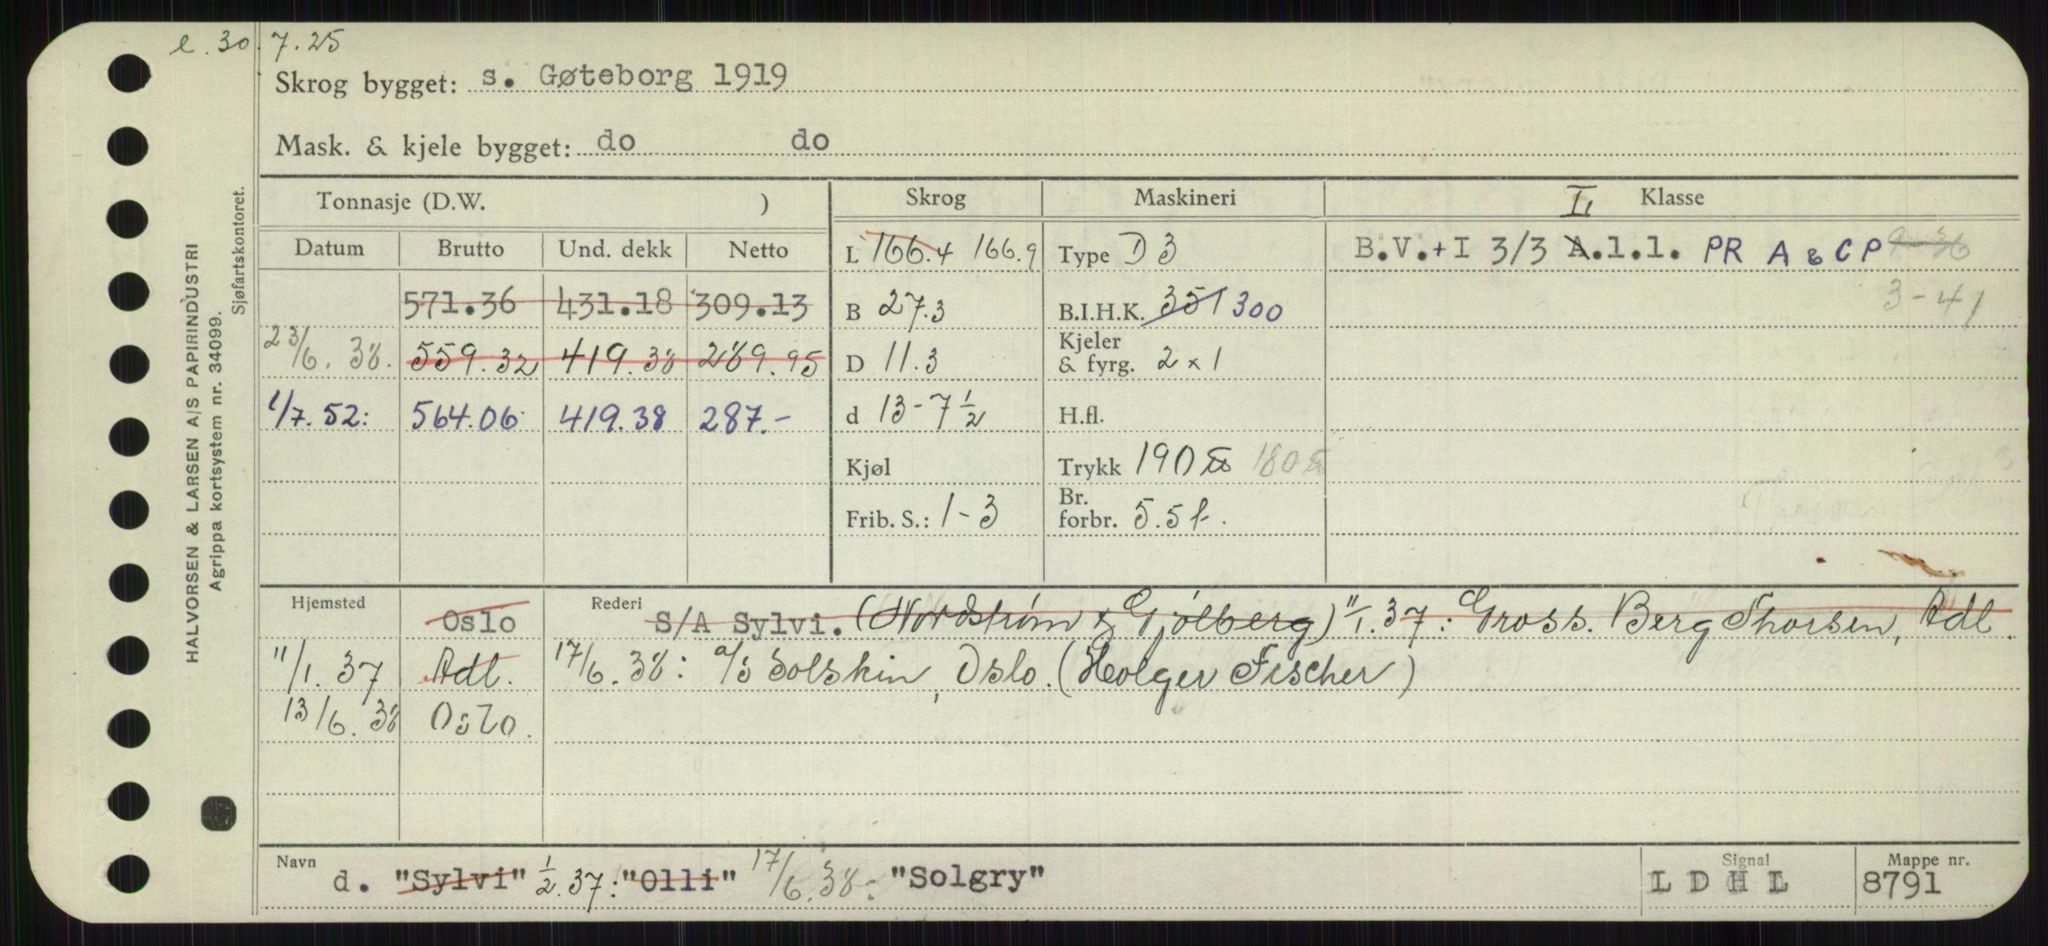 e. 30.7.25
Skrog bygget: s. Gøteborg 1919
Mask. & kjele bygget: do do
Tonnasje (D.W. ) Skrog Maskineri I, Klasse
Datum Brutto Und. dekk Netto L 166.4 166.9 Type D 3 B.V.+I 3/3 A.1.1. PR A & CP 9-36
571.36 431.18 309.13 B 27.3 B.I.H.K. 351 300 3-41
23/6.38. 559.32 419.38 289.95 D 11.3 Kjeler & fyrg. 2 x 1
1/7.52: 564.06 419.38 287.- d 13-7 1/2 H.fl.
Kjøl Trykk 190 180
Frib. S.: 1-3 Br. forbr. 5.5 t.
Hjemsted Oslo Rederi S/A Sylvi. (Nordstrøm & Gjølberg) 11/1.37: Gross. Berg Thorsen, Adl.
11/1.37 Adl. 17/6.38: a/s Solskin, Oslo. (Holger Fischer)
13/6.38 Oslo.
Navn d. "Sylvi" 1/2.37: "Olli" 17/6.38: "Solgry" Signal LDHL Mappe nr. 8791
HALVORSEN & LARSEN A/S PAPIRINDUSTRI
Agrippa kortsystem nr. 34099.
Sjøfartskontoret.